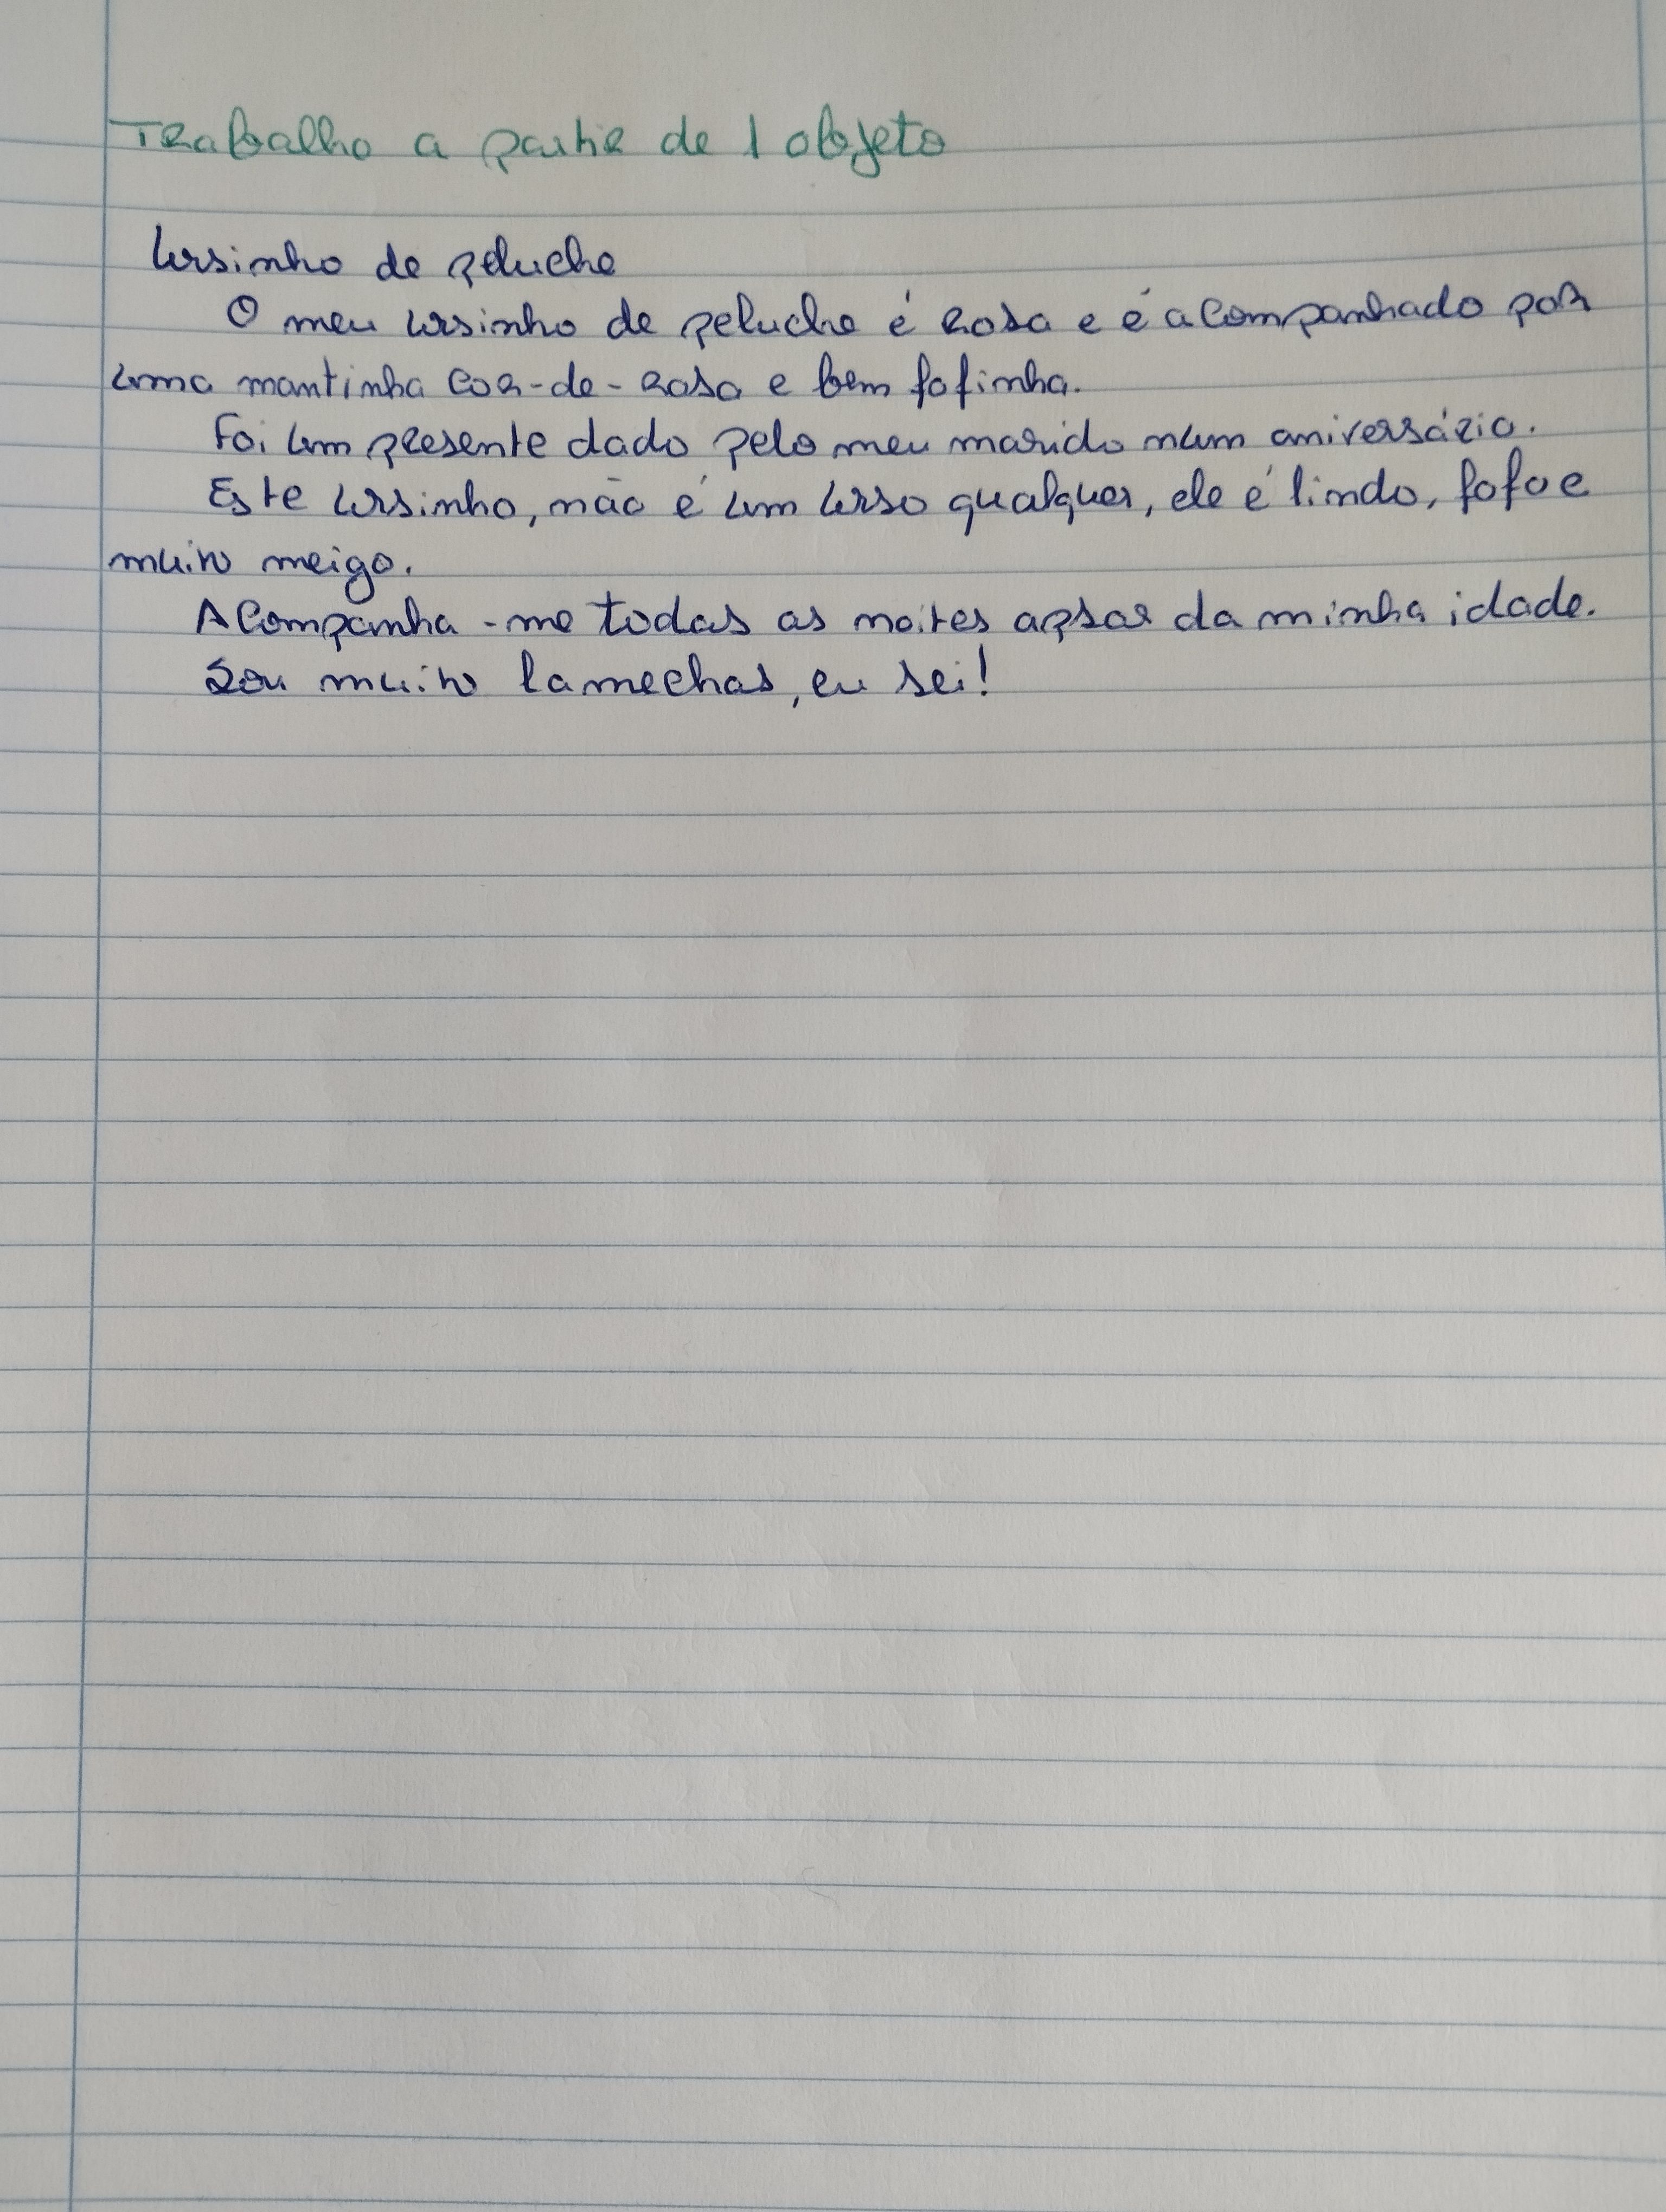 Trabalho a partir de 1 objeto
Ursinho de peluche
O meu ursinho de peluche é rosa e é acompanhado por
uma mantinha cor-de-rosa e bem fofinha.
Foi um presente dado pelo meu marido num aniversário.
Este ursinho, não é um urso qualquer, ele é lindo, fofo e
muito meigo.
Acompanha-me todas as noites apsar da minha idade.
Sou muito lamechas, eu sei!